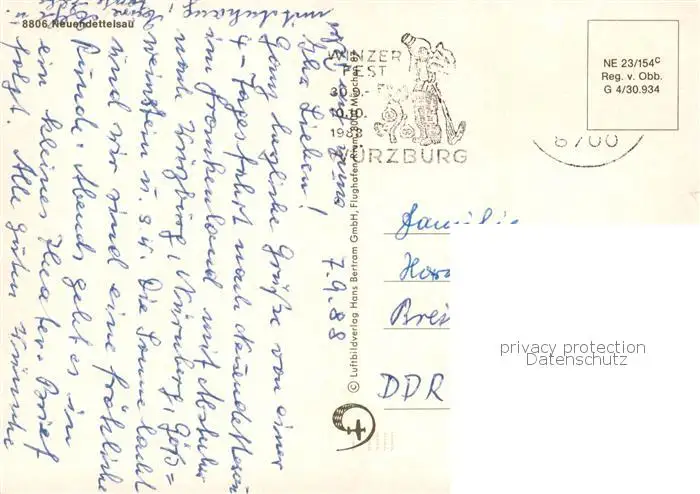 8806 Neuendettelsau
7.9.88
Ihr Lieben!
Ganz herzliche Grüße von einer
4-Tagesfahrt nach Neuendettelsau
im Frankenland mit Abstecher
nach Würzburg, Nürnberg, Göß=
weinstein u.s.w. Die Sonne lacht
und wir sind eine fröhliche
Runde. Abends geht es in
ein kleines Theater. Brief
folgt. Alle guten Wünsche
© Luftbildverlag Hans Bertram GmbH, Flughafen Riem, 8000 München 87
WINZER
FEST
30.9.-
10.10.
1988
WÜRZBURG
8700
NE 23/154c
Reg. v. Obb.
G 4/30.934
Familie
DDR
privacy protection
Datenschutz